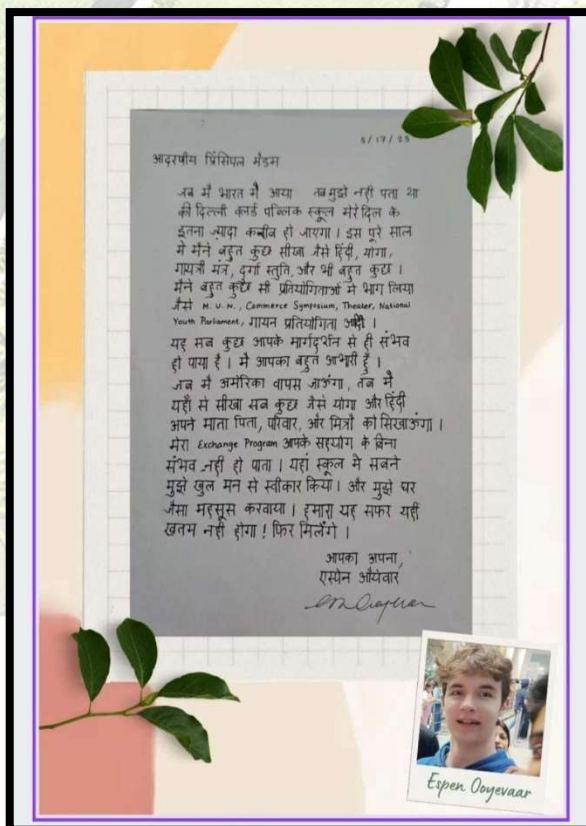 5/17/23
आदरणीय प्रिंसिपल मैडम
जब मै भारत मै आया तब मुझे नही पता था
की दिल्ली वर्ल्ड पब्लिक स्कूल मेरे दिल के
इतना ज़्यादा करीब हो जाएगा। इस पूरे साल
मे मैंने बहुत कुछ सीखा जैसे हिंदी, योगा,
गायत्री मंत्र, दुर्गा स्तुति, और भी बहुत कुछ।
मैंने बहुत कुछ सी प्रतियोगिताओं मे भाग लिया
जैसे M.U.N., Commerce Symposium, Theater, National
Youth Parliament, गायन प्रतियोगिता आदी।
यह सब कुछ आपके मार्गदर्शन से ही संभव
हो पाया है। मै आपका बहुत आभारी हूँ।
जब मै अमेरिका वापस जाऊंगा, तब मै
यहाँ से सीखा सब कुछ जैसे योगा और हिंदी
अपने माता पिता, परिवार, और मित्रो को सिखाऊंगा।
मेरा Exchange Program आपके सहयोग के बिना
संभव नही हो पाता। यहां स्कूल मे सबने
मुझे खुल मन से स्वीकार किया। और मुझे घर
जैसा महसूस करवाया। हमारा यह सफर यहीं
खतम नही होगा! फिर मिलेंगे।
आपका अपना,
एस्पेन औयेवार
Espen Ooyevaar